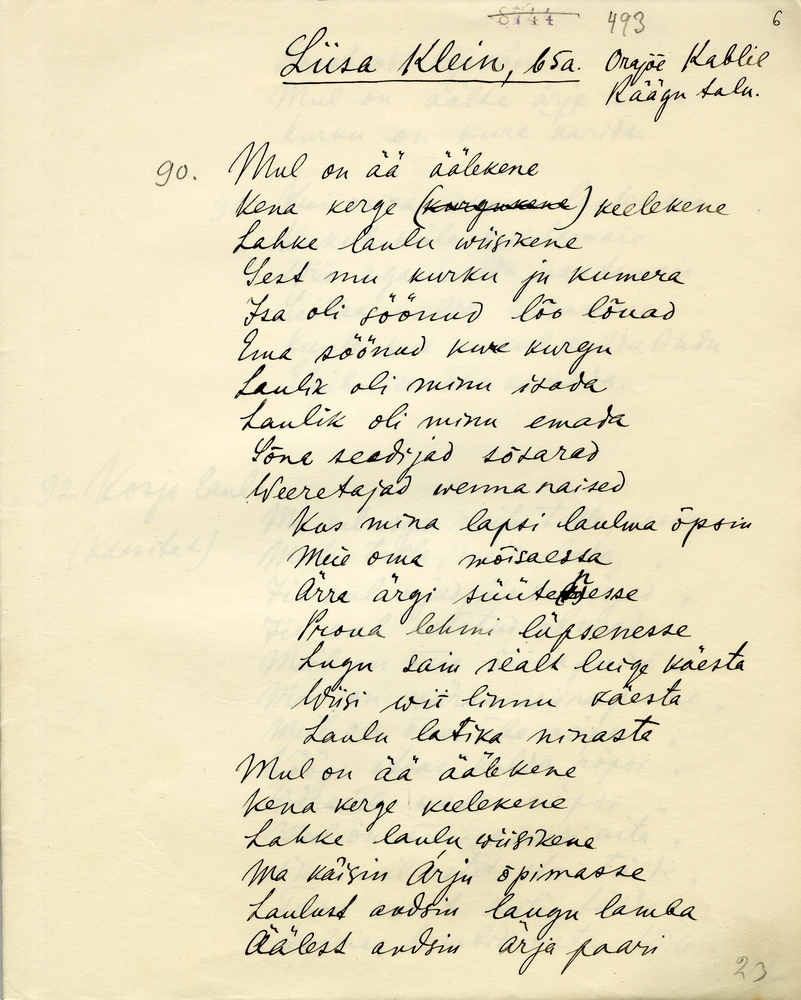 8744 493 6
Liisa Klein, 65a. Orajõe Kablil
Räägu talu.
90. Mul on ää äälekene
Kena kerge (kurgukene) keelekene
Lahke laulu wiisikene
Sest mu kurku ju kumera
Isa oli söönud lõo lõuad
Ema söönud kure kurgu
Laulik oli minu isada
Laulik oli minu emada
Sõna seadijad sõsarad
Weeretajad wennanaised
Kus mina lapsi laulma õpsin
Meie oma mõisaessa
Ärra ärgi süütenesse
Proua lehmi lüpsenesse
Lugu sain sealt luige käesta
Wiisi wii linnu käesta
Laulu latika ninasta
Mul on ää äälekene
Kena kerge keelekene
Lahke laulu wiisikene
Ma käisin Ärju õpimasse
Laulust andsin laugu lamba
Äälest andsin ärja paari
23